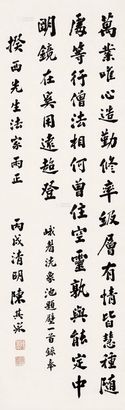 萬業唯心造勤修率級層有情皆慧種隨
處等行僧法相何曾住空靈孰與能定中
明鏡在奚用遠超登
峨眉洗象池題壁一首錄奉
揆西先生法家兩正
丙戌清明陳其采